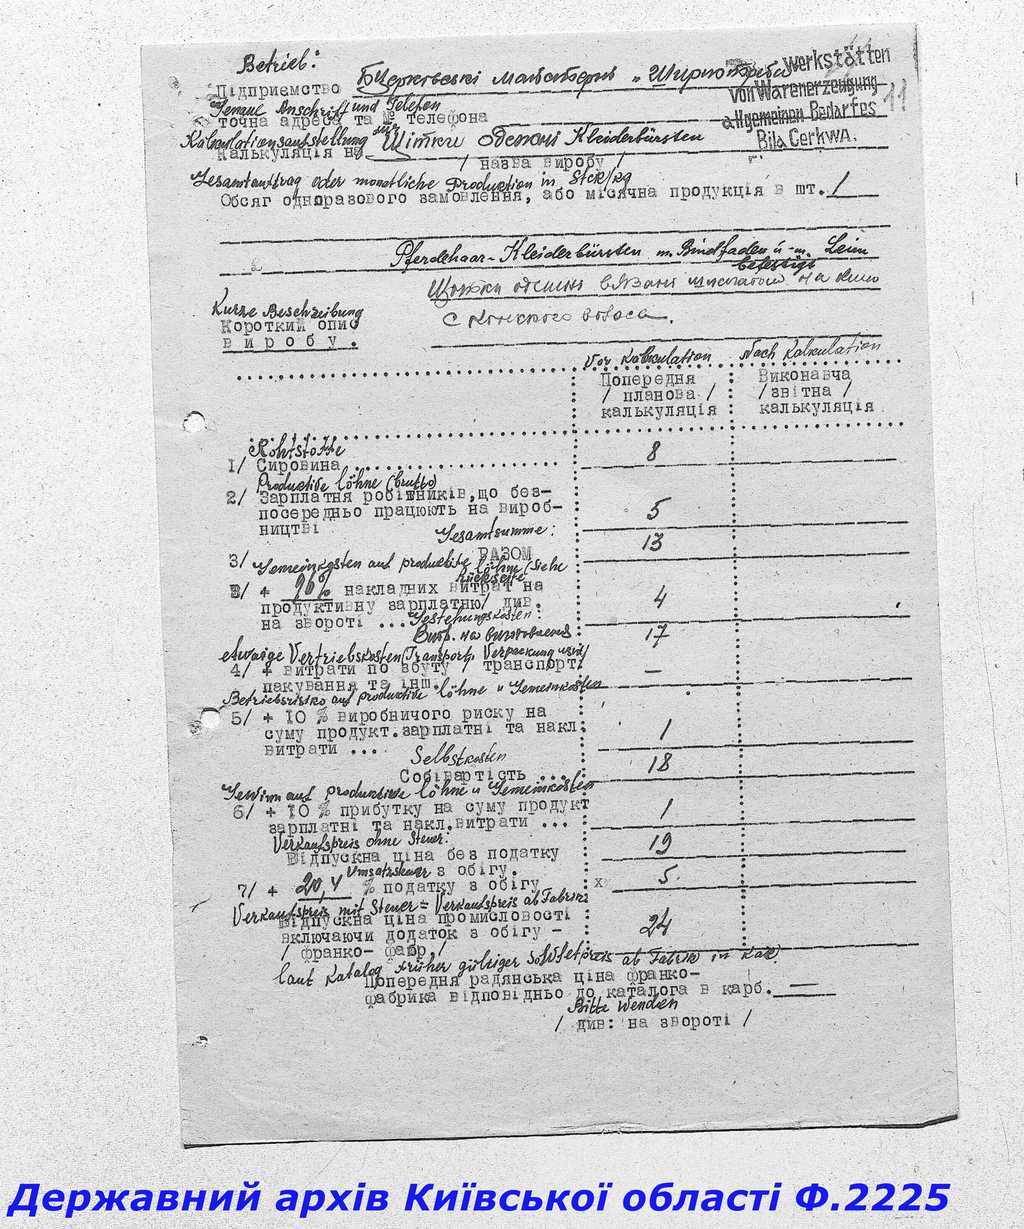 Betrieb:
Підприємство Бцерковські майстерні „Ширпотреба"
Werkstätten
von Warenerzeugung
allgemeinen Bedarfes
Bila Cerkwa.
11
Genaue Anschrift und Telefon
точна адреса та № телефона
Kalkulationsaufstellung
Калькуляція на Щітки одежні Kleiderbürsten
/ назва виробу /
Gesamtauftrag oder monatliche Produktion in Stck/kg
Обсяг одноразового замовлення, або місячна продукція в шт. 1
Pferdehaar-Kleiderbürsten m. Bindfaden u. m. Leim
befestigt
Щотки одежні вязані шпагатом на клею
с конского волоса.
Kurze Beschreibung
Короткий опис
виробу.
Vor Kalkulation
Nach Kalkulation
Попередня
/ планова /
калькуляція
Виконавча
/звітна /
калькуляція
Rohstoffe
1/ Сировина 8
Produktive löhne (brutto)
2/ Зарплатня робітників, що без-
посередньо працюють на вироб- 5
ництві
Gesamtsumme:
РАЗОМ 13
3/ Gemeinkosten auf produktive löhne (siehe
Rückseite
3/ + 90% накладних витрат на
продуктивну зарплатню/ див. 4
на звороті ... Gestehungskosten:
Вир. на виготовлення 17
etwaige Vertriebskosten (Transport, Verpackung usw)
4/ + витрати по збуту / транспорт. —
пакування та інш.
Betriebsrisiko auf produktive löhne u Gemeinkosten
5/ + 10 % виробничого риску на
суму продукт.зарплатні та накл. 1
витрати ...
Selbstkosten
Собівартість ... 18
Gewinn auf produktive löhne u Gemeinkosten
6/ + 10 % прибутку на суму продукт 1
зарплатні та накл.витрати ...
Verkaufspreis ohne Steuer:
Відпускна ціна без податку 19
Umsatzsteuer з обігу.
7/ + 20,4 % податку з обігу х 5
Verkaufspreis mit Steuer = Verkaufspreis ab Fabrik
Відпускна ціна промисловості
включаючи додаток з обігу - 24
/ франко- фабр./
laut Katalog früher gültiger Sowjetpreis ab Fabrik in Karb.
Попередня радянська ціна франко-
фабрика відповідньо до каталога в карб. —
Bitte Wenden
/ див: на звороті /
Державний архів Київської області Ф.2225